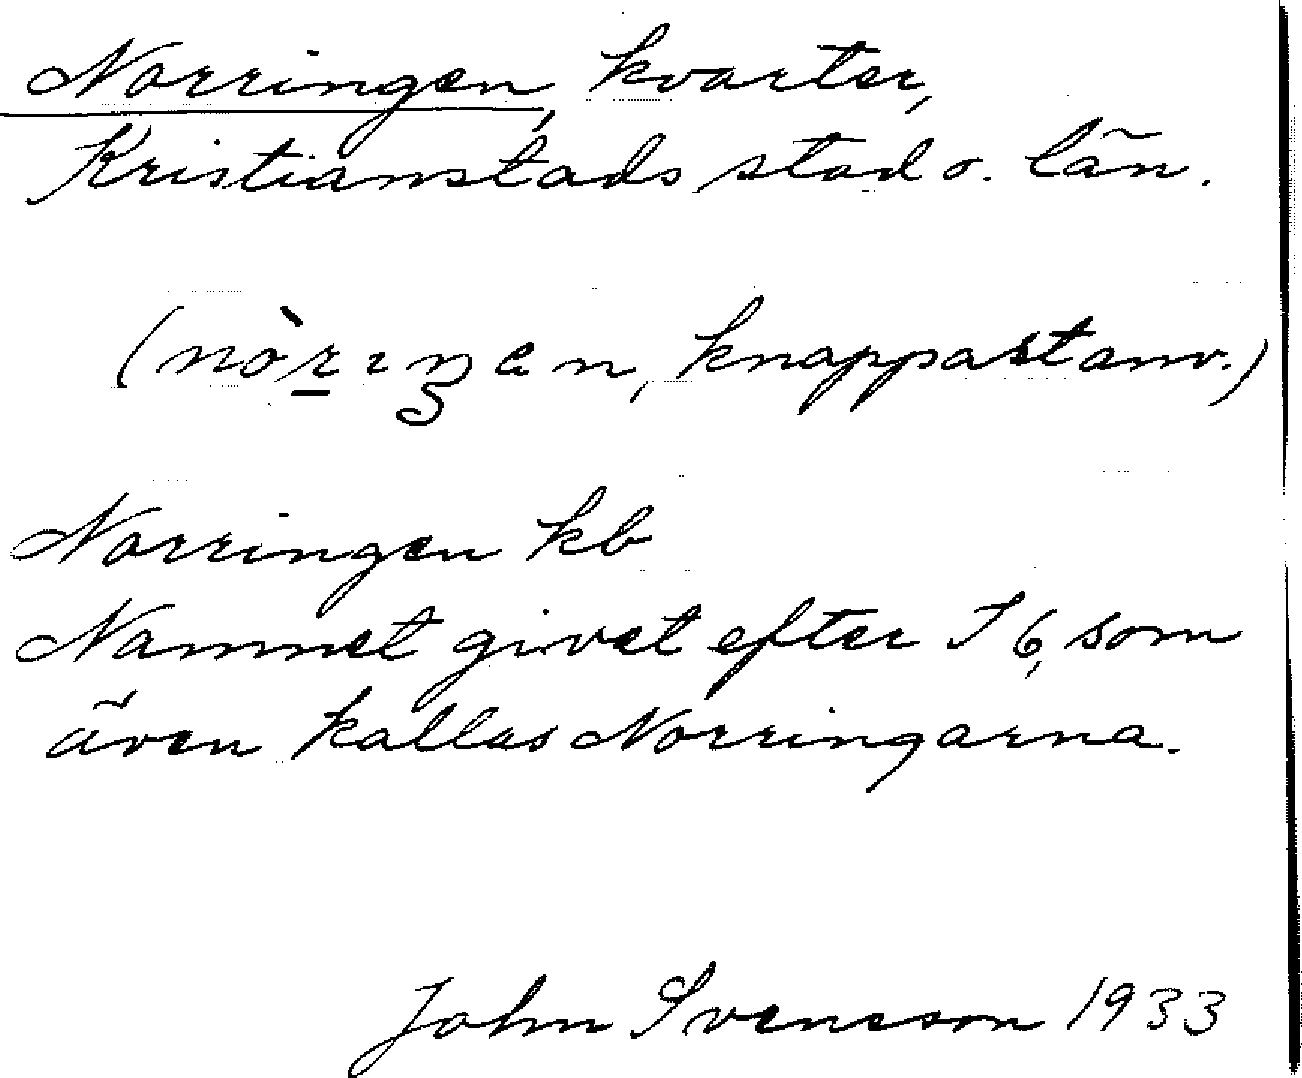 Norringen, kvarter,
Kristianstads stad o. län.
(nòrıŋen, knappast anv.)
Norringen kb
Namnet givet efter I 6, som
även kallas Norringarna.
John Svensson 1933